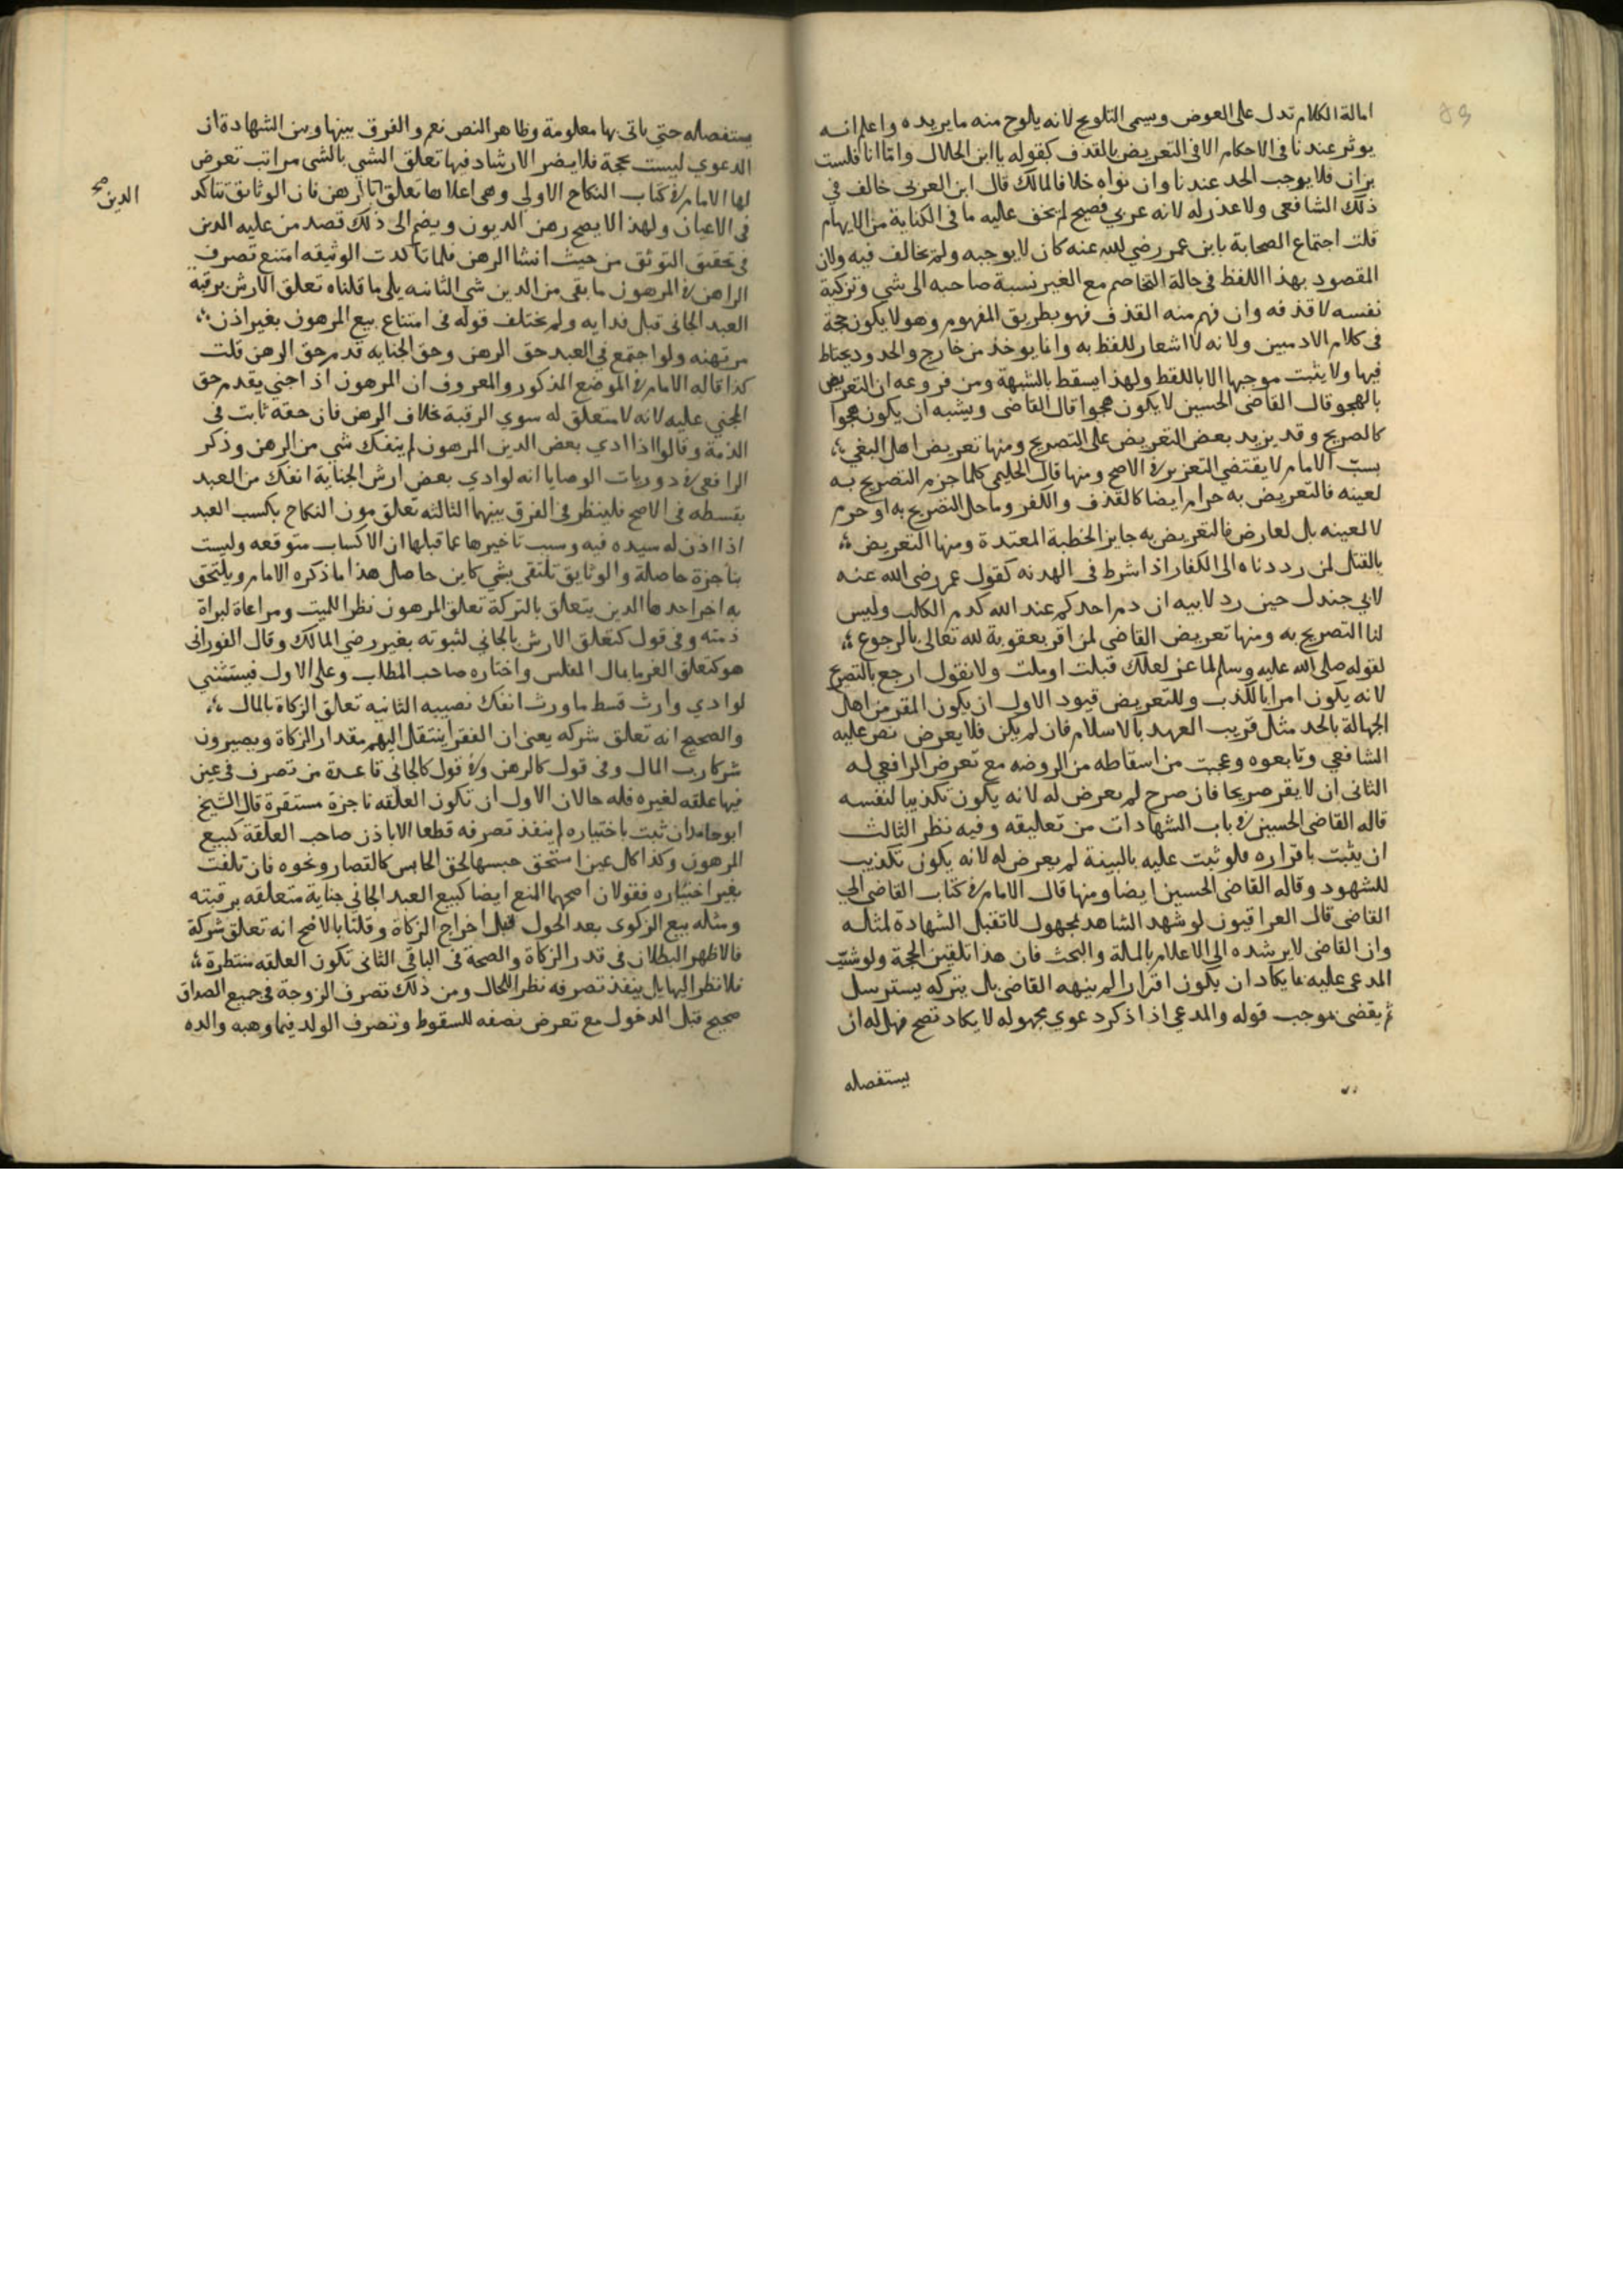 امالة الكلام تدل على العوض ويسمى التلويح لانه يلوح منه ما يريده واعلم انه
يوثر عندنا فى الاحكام الا فى التعريض بالقذف كقوله يا ابن الحلال واما انا فلست
بزان فلا يوجب الحد عندنا وان نواه خلافا لمالك قال ابن العربى خالف في
ذلك الشافعى ولا عذر له لانه عربي فصيح لم يخف عليه ما فى الكناية من الايهام
قلت اجتماع الصحابة بابن عمر رضي الله عنه كان لا يوجبه ولم يخالف فيه ولان
المقصود بهذا اللفظ فى حالة التخاصم مع الغير نسبة صاحبه الى شي وتزكية
نفسه لا قذفه وان فهم منه القذف فهو بطريق المفهوم وهو لا يكون حجة
فى كلام الادميين ولانه لا اشعار للفظ به وانما يوخذ من خارج والحدود يحتاط
فيها ولا يثبت موجبها الا باللفظ ولهذا يسقط بالشبهة ومن فروعه ان التعريض
بالهجو قال القاضى الحسين لا يكون هجوا قال القاضى ويشبه ان يكون هجوا
كالصريح وقد يزيد بعض التعريض على التصريح ومنها تعريض اهل البغي
بسب الامام لا يقتضي التعزير في الاصح ومنها قال الحليمي كلما حرم التصريح به
لعينه فالتعريض به حرام ايضا كالقذف والكفر وما حل التصريح به او حرم
لا لعينه بل لعارض فالتعريض به جايز الخطبة المعتدة ومنها التعريض
بالقتل لمن رددناه الى الكفار اذا شرط فى الهدنه كقول عمر رضى الله عنه
لابي جندل حين رد لابيه ان دم احدكم عند الله كدم الكلب وليس
لنا التصريح به ومنها تعريض القاضى لمن اقر بعقوبة لله تعالى بالرجوع
لقوله صلى الله عليه وسلم لماعز لعلك قبلت او ملت ولا نقول ارجع بالتصريح
لانه يكون امرا بالكذب وللتعريض قيود الاول ان يكون المقر من اهل
الجهالة بالحد مثل قريب العهد بالاسلام فان لم يكن فلا يعرض نص عليه
الشافعي وتابعوه وعجبت من اسقاطه من الروضه مع تعرض الرافعي له
الثانى ان لا يقر صريحا فان صرح لم يعرض له لانه يكون تكذيبا لنفسه
قاله القاضى الحسين في باب الشهادات من تعليقه وفيه نظر الثالث
ان يثبت باقراره فلو ثبت عليه بالبينة لم يعرض له لانه يكون تكذيب
للشهود وقاله القاضى الحسين ايضا ومنها قال الامام في كتاب القاضى الي
القاضى قال العراقيون لو شهد الشاهد بمجهول لا تقبل الشهادة لمثله
وان القاضى لا يرشده الى الاعلام بالملة والبحث فان هذا تلقين الحجة ولو شبب
المدعى عليه بما يكاد ان يكون اقرارا لم ينهه القاضى بل يتركه يسترسل
ثم يقضى بموجب قوله والمدعي اذا ذكر دعوي مجهوله لا يكاد تصح فهل له ان
يستفصله
يستفصله حتي ياتى بها معلومة وظاهر النص نعم والفرق بينها وبين الشهادة ان
الدعوي ليست بحجة فلا يضر الارشاد فيها تعلق الشي بالشى مراتب تعرض
لها الامام في كتاب النكاح الاولي وهى اعلاها تعلق الرهن فان الوثائق تتاكد
الدين صح
فى الاعيان ولهذا لا يصح رهن الديون ويضم الى ذلك قصد من عليه الدين
فى تحقيق التوثق من حيث انشا الرهن فلما تاكدت الوثيقه امتنع تصرف
الراهن في المرهون ما بقى من الدين شى الثانيه يلى ما قلناه تعلق الارش برقبة
العبد الجانى قبل فدايه ولم يختلف قوله فى امتناع بيع المرهون بغير اذن
مرتهنه ولو اجتمع في العبد حق الرهن وحق الجنايه قدم حق الرهن قلت
كذا قاله الامام في الموضع المذكور والمعروف ان المرهون اذا جنى يقدم حق
المجني عليه لانه لا متعلق له سوي الرقبة خلاف الرهن فان حقه ثابت فى
الذمة وقالوا اذا ادي بعض الدين المرهون لم ينفك شي من الرهن وذكر
الرافعى في دوريات الوصايا انه لو ادي بعض ارش الجناية انفك من العبد
بقسطه فى الاصح فلينظر فى الفرق بينهما الثالثه تعلق مون النكاح بكسب العبد
اذا اذن له سيده فيه وسبب تاخيرها عما قبلها ان الاكساب متوقعه وليست
بناجزة حاصلة والوثايق تلتقى بشي كاين حاصل هذا ما ذكره الامام ويلتحق
به اخر احدها الدين يتعلق بالتركة تعلق المرهون نظرا للميت ومراعاة لبراة
ذمته وفى قول كتعلق الارش بالجاني لثبوته بغير رضي المالك وقال الفورانى
هو كتعلق الغرما بمال المفلس واختاره صاحب المطلب وعلى الاول فيستثنى
لو ادي وارث قسط ما ورث انفك نصيبه الثانيه تعلق الزكاة بالمال
والصحيح انه تعلق شركه يعنى ان الفقرا ينتقل اليهم مقدار الزكاة ويصيرون
شركا رب المال وفى قول كالرهن وفى قول كالجانى قاعدة من تصرف فى عين
فيها علقه لغيره فله حالان الاول ان تكون العلقه ناجزة مستقرة قال الشيخ
ابو حامد ان ثبت باختياره لم ينفذ تصرفه قطعا الا باذن صاحب العلقة كبيع
المرهون وكذا كل عين استحق حبسها لحق الحابس كالقصار ونحوه فان تلفت
بغير اختياره فقولان اصحهما المنع ايضا كبيع العبد الجانى جناية متعلقه برقبته
ومثله بيع الزكوى بعد الحول قبل اخراج الزكاة وقلنا بالاصح انه تعلق شركة
فالاظهر البطلان فى قدر الزكاة والصحة فى الباقى الثانى تكون العلقه منتظرة
فلا نظر اليها بل ينفذ تصرفه نظرا للحال ومن ذلك تصرف الزوجة في جميع الصداق
صحيح قبل الدخول مع تعرض نصفه للسقوط وتصرف الولد فيما وهبه والده